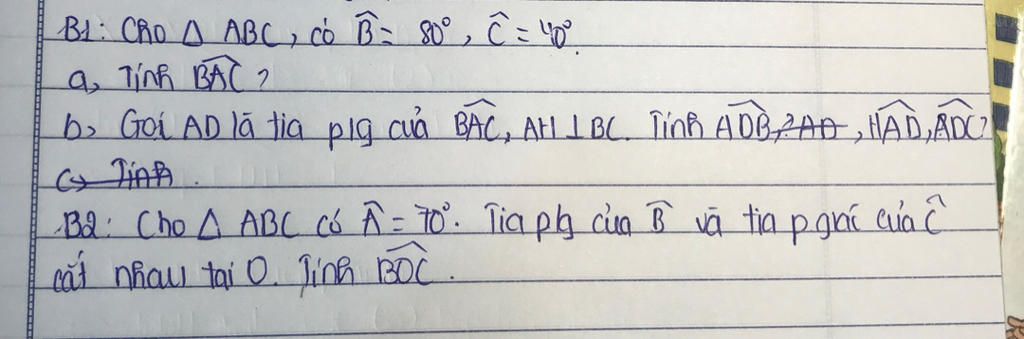 B1: Cho Δ ABC, có B̂ = 80°, Ĉ = 40°.
a, Tính BAC?
b, Gọi AD là tia p/g của BAC, AH ⊥ BC. Tính ADB, HAD, ADC?
c, Tính.
B2: Cho Δ ABC có Â = 70°. Tia p/g của B̂ và tia p.giác của Ĉ
cắt nhau tại O. Tính BOC.